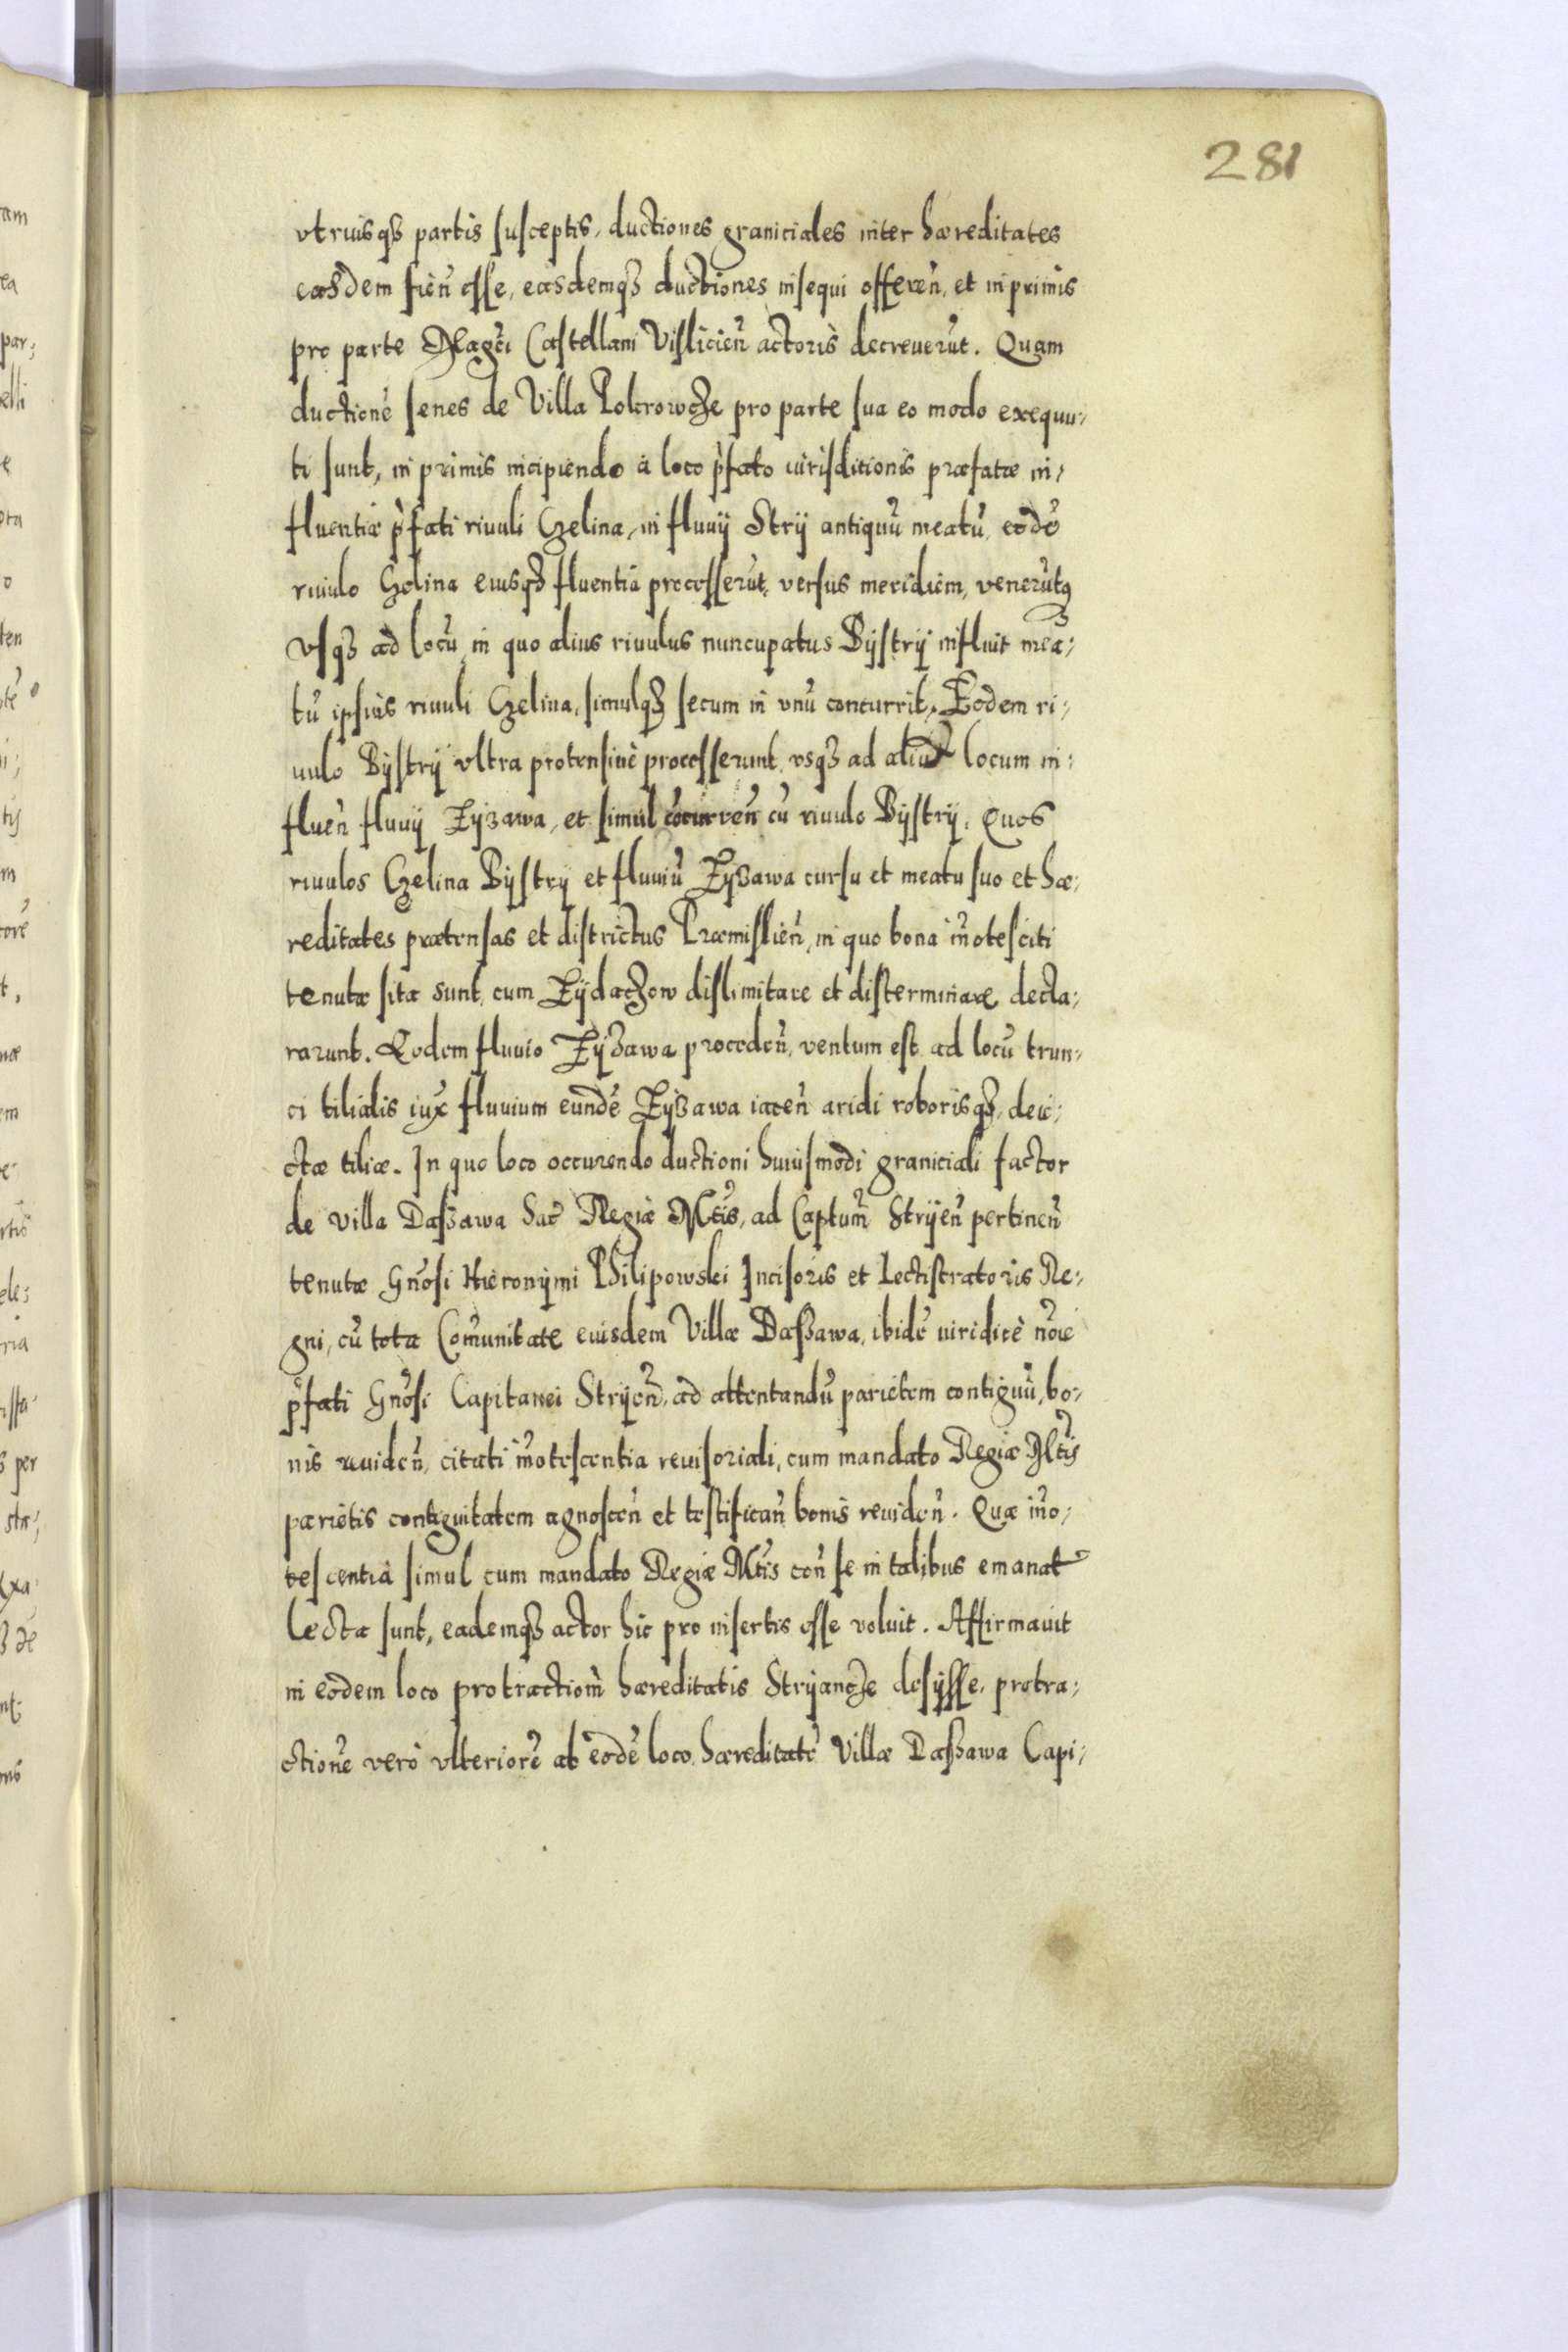 281
vtriusqȝ partis susceptis, ductiones graniciales inter hæreditates
easdem fień esse, easdemqȝ ductiones insequi offereń, et inprimis
pro parte Magci Castellani Vislicień actoris decreuerut. Quam
ductionē senes de Villa Pokrowcze pro parte sua eo modo exequu,
ti sunt, in primis incipiendo à loco pfato iurisditionis præfatæ in,
fluentiæ pfati riuuli Czelina, in fluuij Strij antiquū meatū, eodē
riuulo Czelina eiusqȝ fluentia processerūt, versus meridiem, venerūtqȝ
vsqȝ ad locū, in quo alius riuulus nuncupatus Bÿstrÿ influit mea,
tū ipsius riuuli Czelina, simulqȝ secum in vnū concurrit. Eodem ri,
uulo Bÿstrÿ vltra protensiuè processerunt vsqȝ ad aliud locum in,
flueń fluuij Zÿzawa, et simul cōcurreń cū riuulo Bÿstrÿ. Quos
riuulos Czelina Bÿstrÿ et fluuiū Zÿzawa cursu et meatu suo et hæ,
reditates prætensas et districtus Præmislień, in quo bona īnotesciti
tenutæ sitæ sunt, cum Zÿdaczow dislimitare et disterminare decla,
rarunt. Eodem fluuio Zÿzawa procedeń, ventum est ad locū trun,
ci tilialis iux fluuium eundē Zÿzawa iaceń aridi roborisqȝ, deie,
ctæ tiliæ. In quo loco occurendo ductioni huiusmodi graniciali factor
de villa Daszawa Sac Regiæ Mtis, ad Captum Strÿeń pertineń
tenutæ Gnosi Hieronÿmi Philipowski Incisoris et Lectistratoris Re,
gni, cū tota Comunitate eiusdem Villæ Daszawa, ibidē iuridicè noie
pfati Gnosi Capitanei Strÿeń, ad attentandū parietem contiguū, bo,
nis reuideń, citati īnotescentia reuisoriali, cum mandato Regiæ Mtis
parietis contiguitatem agnosceń et testificań bonis reuideń. Quæ īno,
tescentia simul cum mandato Regiæ Mtis coń se in talibus emanat
Lectæ sunt, eademqȝ actor hic pro insertis esse voluit. Affirmauit
in eodem loco protractionī hæreditatis Strÿancze desÿsse, protra,
ctionē verò vlteriorē ab eodē loco hæreditatē Villæ Daszawa Capi,